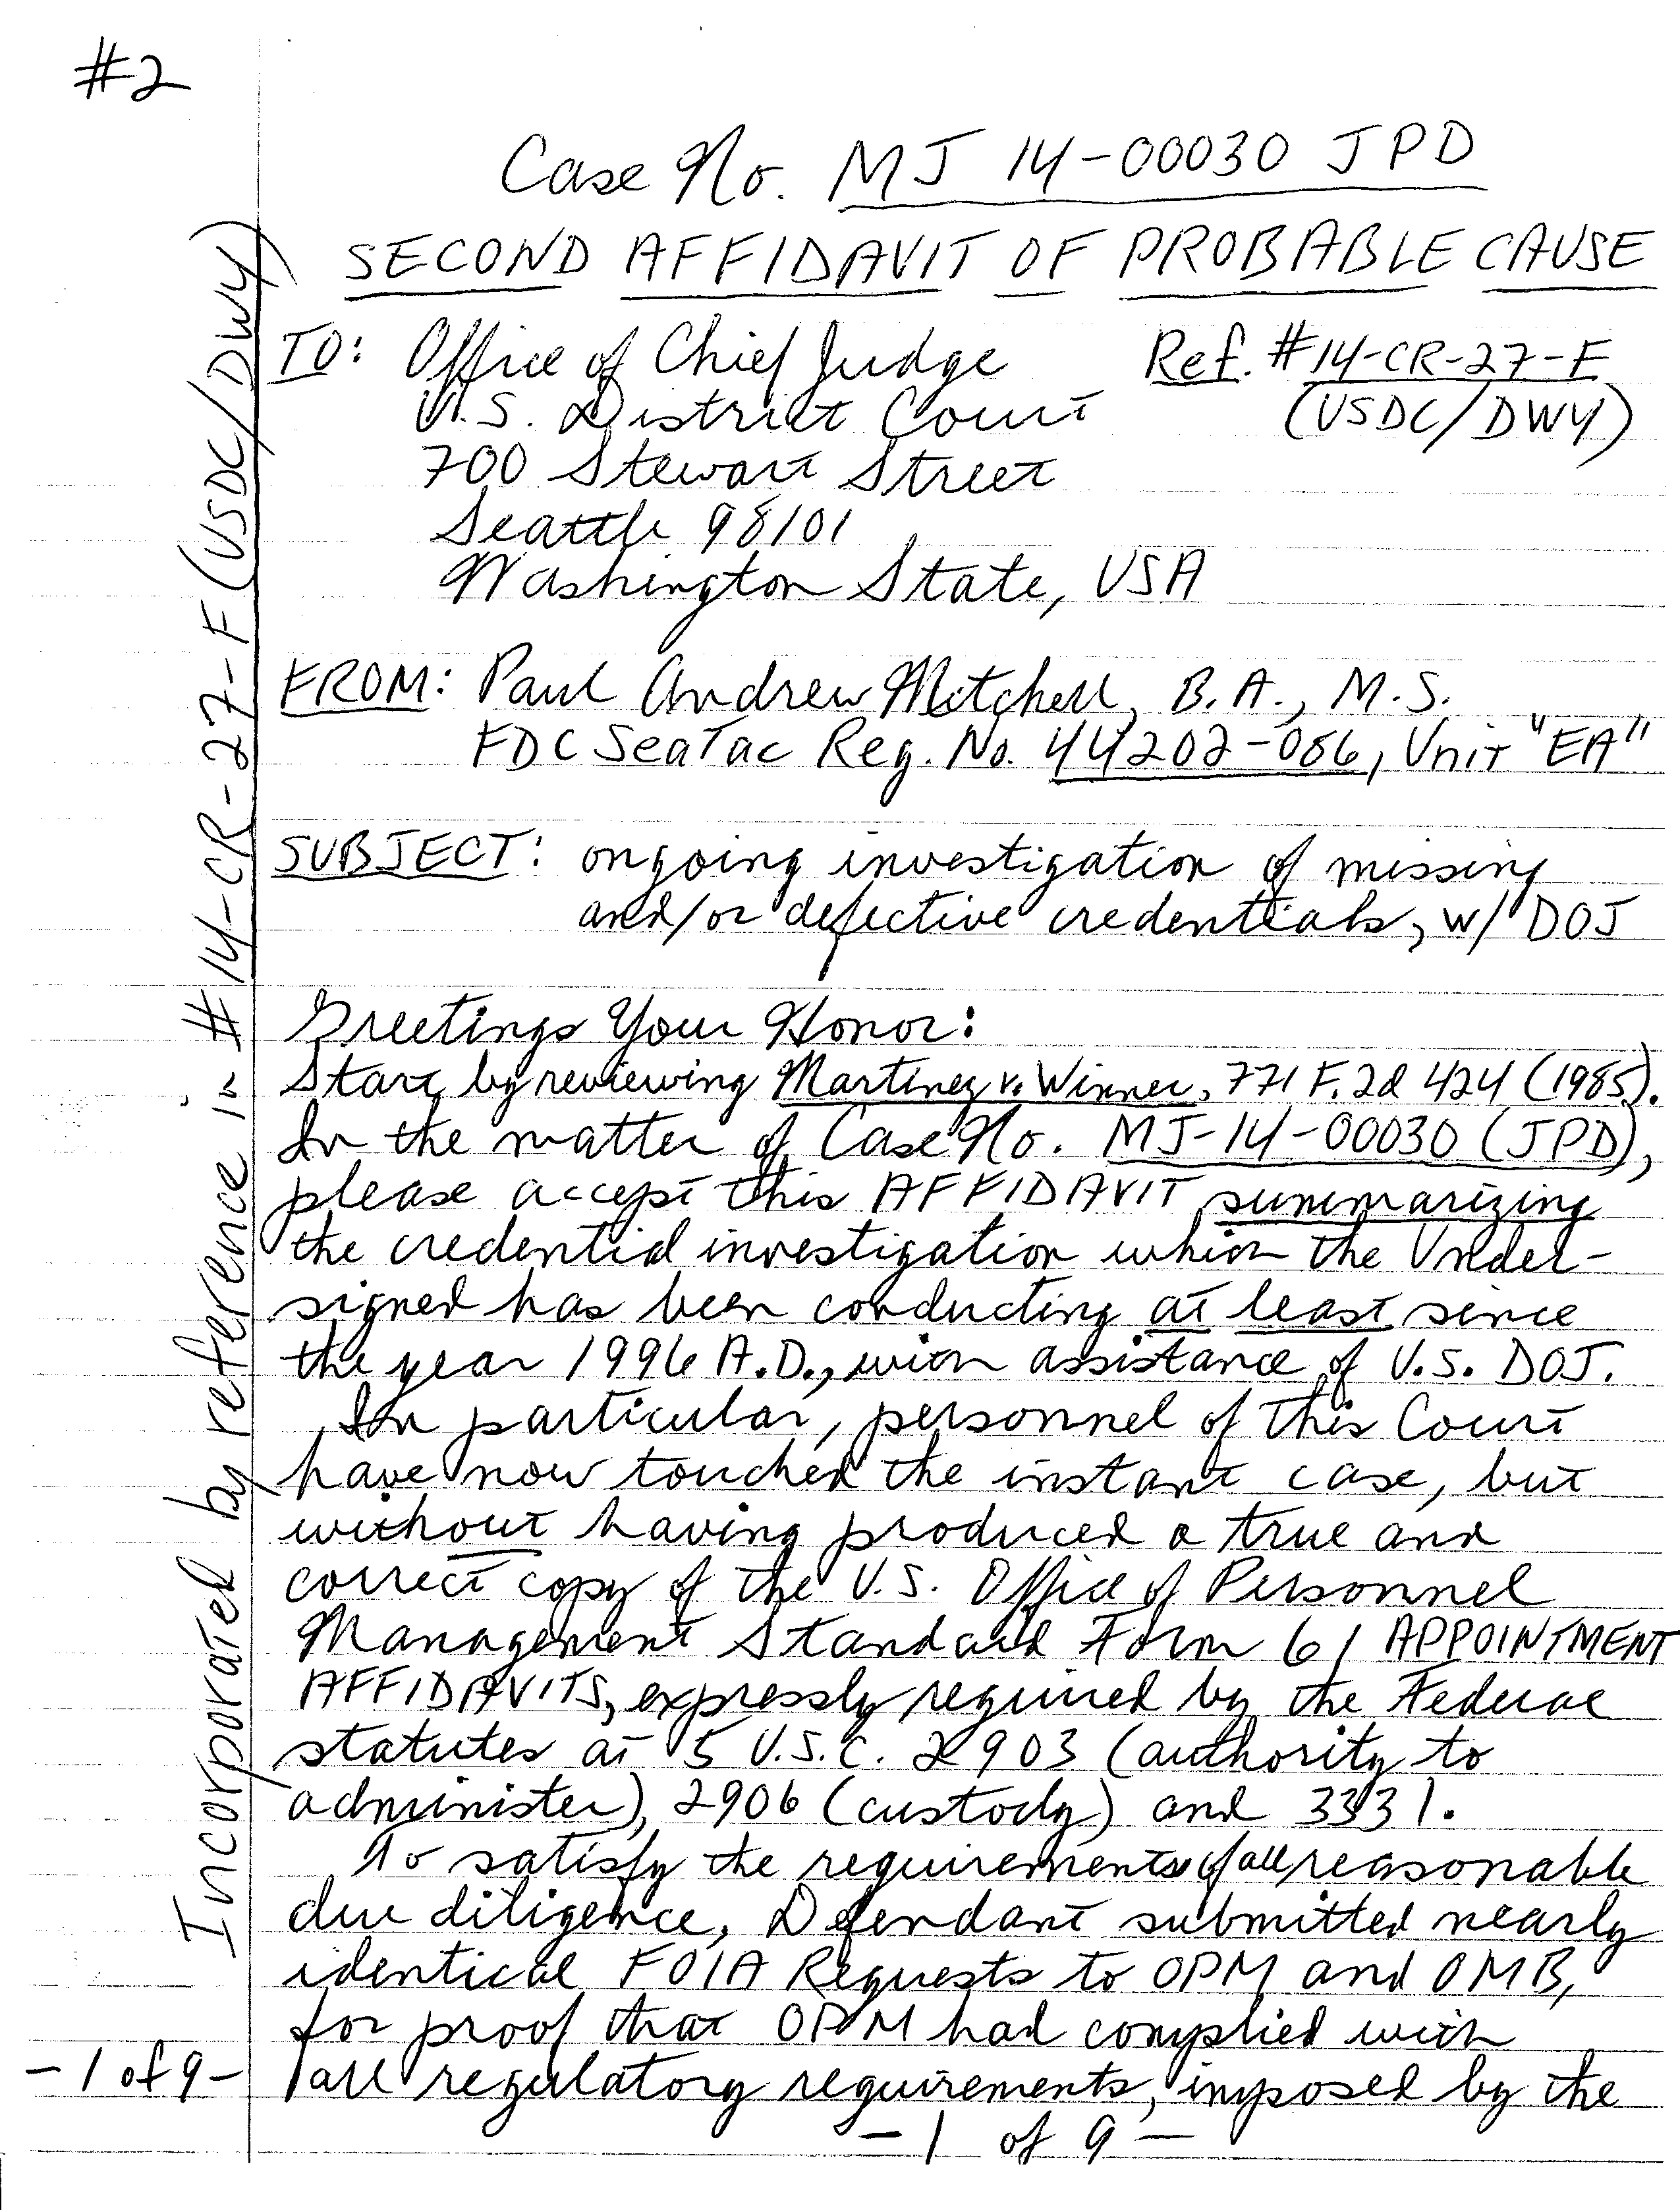 #2
Case No. MJ 14-00030 JPD
SECOND AFFIDAVIT OF PROBABLE CAUSE
TO: Office of Chief Judge Ref. #14-CR-27-F
U.S. District Court (USDC/DWY)
700 Stewart Street
Seattle 98101
Washington State, USA
FROM: Paul Andrew Mitchell, B.A., M.S.
FDC SeaTac Reg. No. 44202-086, Unit "EA"
SUBJECT: ongoing investigation of missing
and/or defective credentials, w/ DOJ
Greetings Your Honor:
Start by reviewing Martinez v. Winner, 771 F.2d 424 (1985).
In the matter of Case No. MJ-14-00030 (JPD),
please accept this AFFIDAVIT summarizing
the credential investigation which the Under-
signed has been conducting at least since
the year 1996 A.D., with assistance of U.S. DOJ.
In particular, personnel of this Court
have now touched the instant case, but
without having produced a true and
correct copy of the U.S. Office of Personnel
Management Standard Form 61 APPOINTMENT
AFFIDAVITS, expressly required by the Federal
statutes at 5 U.S.C. 2903 (authority to
administer), 2906 (custody) and 3331.
To satisfy the requirements of all reasonable
due diligence, Defendant submitted nearly
identical FOIA Requests to OPM and OMB,
for proof that OPM had complied with
all regulatory requirements, imposed by the
-1 of 9-
-1 of 9-
Incorporated by reference in #14-CR-27-F (USDC/DWY)